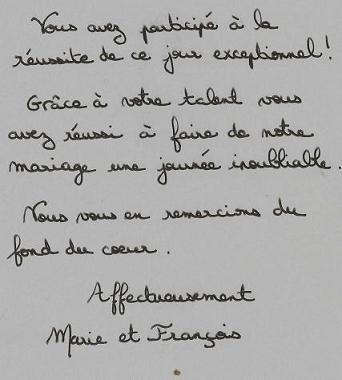 Vous avez participé à la
réussite de ce jour exceptionnel !
Grâce à votre talent vous
avez réussi à faire de notre
mariage une journée inoubliable.
Nous vous en remercions du
fond du coeur.
Affectueusement
Marie et François